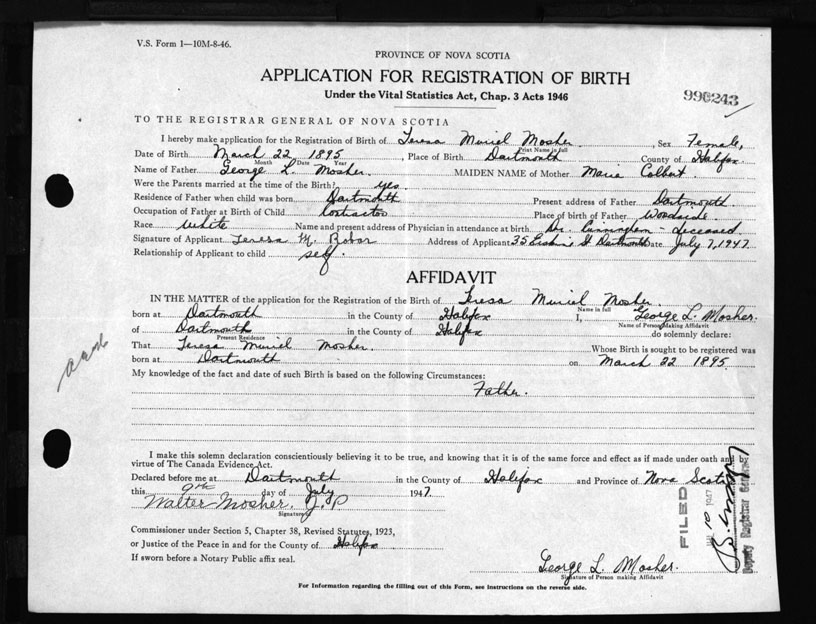 V.S. Form 1—10M-8-46.
PROVINCE OF NOVA SCOTIA
APPLICATION FOR REGISTRATION OF BIRTH
Under the Vital Statistics Act, Chap. 3 Acts 1946
990243
TO THE REGISTRAR GENERAL OF NOVA SCOTIA
I hereby make application for the Registration of Birth of Teresa Muriel Mosher, Sex Female,
Print Name in full
Date of Birth March 22 1895, Place of Birth Dartmouth County of Halifax
Month Date Year
Name of Father George L. Mosher. MAIDEN NAME of Mother Marie Colbert.
Were the Parents married at the time of the Birth? yes.
Residence of Father when child was born Dartmouth Present address of Father Dartmouth.
Occupation of Father at Birth of Child Contractor Place of birth of Father Woodside.
Race White Name and present address of Physician in attendance at birth Dr. Cunningham - deceased.
Signature of Applicant Teresa M. Robar Address of Applicant 35 Erskine St Dartmouth Date July 7, 1947.
Relationship of Applicant to child self.
AFFIDAVIT
IN THE MATTER of the application for the Registration of the Birth of Teresa Muriel Mosher.
Name in full
born at Dartmouth in the County of Halifax I, George L. Mosher.
Name of Person Making Affidavit
of Dartmouth in the County of Halifax do solemnly declare:
Present Residence
That Teresa Muriel Mosher. Whose Birth is sought to be registered was
born at Dartmouth on March 22 1895.
My knowledge of the fact and date of such Birth is based on the following Circumstances:
Father.
I make this solemn declaration conscientiously believing it to be true, and knowing that it is of the same force and effect as if made under oath and by
virtue of The Canada Evidence Act.
Declared before me at Dartmouth in the County of Halifax and Province of Nova Scotia
this 9th day of July 1947.
Walter Mosher. J. P
Signature
FILED
10 1947
Deputy Registrar General
Commissioner under Section 5, Chapter 38, Revised Statutes, 1923,
or Justice of the Peace in and for the County of Halifax
If sworn before a Notary Public affix seal.
George L. Mosher.
Signature of Person making Affidavit
For Information regarding the filling out of this Form, see instructions on the reverse side.